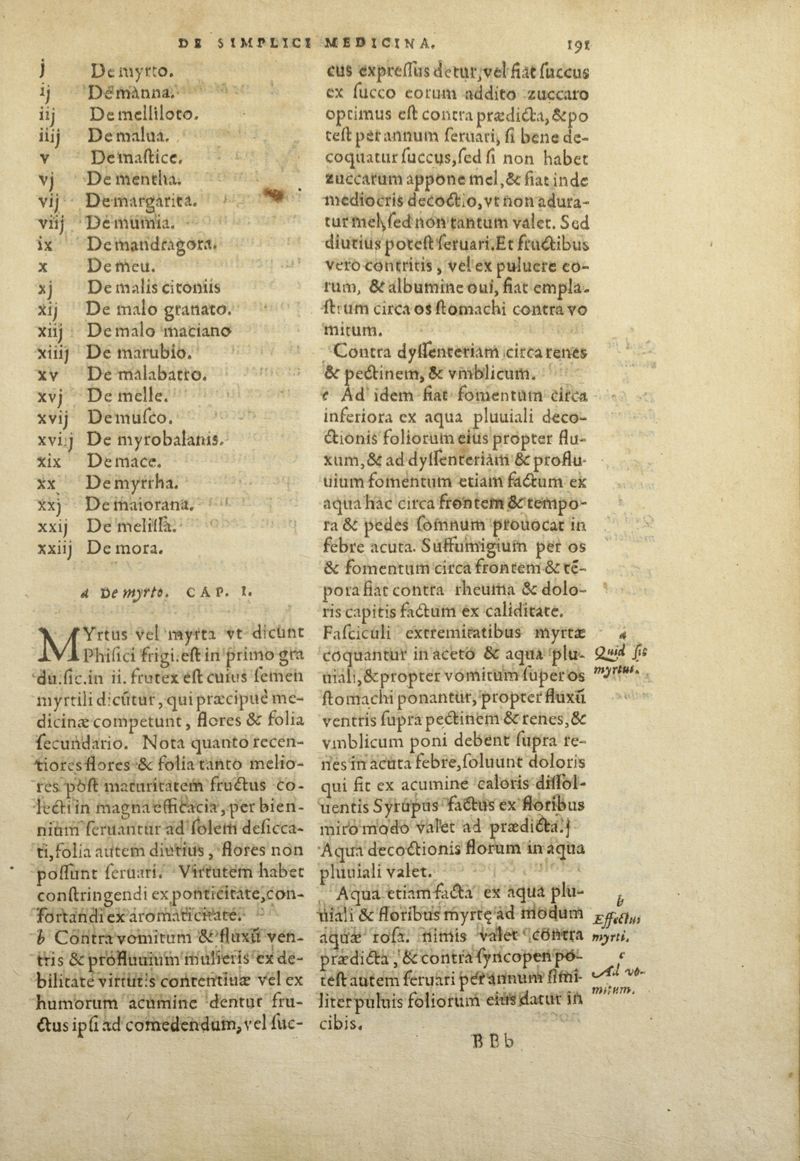 DE SIMPLICI MEDICINA. 191
j De myrto.
ij De manna.
iij De melliloto.
iiij De malua.
v De mastice.
vj De mentha.
vij De margarita.
viij De mumia.
ix De mandragora.
x De meu.
xj De malis citoniis
xij De malo granato.
xiij De malo maciano
xiiij De marubio.
xv De malabatro.
xvj De melle.
xvij De musco.
xviij De myrobalanis.
xix De mace.
xx De myrrha.
xxj De maiorana.
xxij De melissa.
xxiij De mora.
a De myrto. CAP. I.
MYrtus vel myrta vt dicũnt
Phisici frigi.est in primo gra
du.sic.in ii. frutex est cuius semen
myrtili dicũtur, qui præcipuè me-
dicinæ competunt, flores & folia
secundario. Nota quanto recen-
tiores flores & folia tanto melio-
res post maturitatem fructus co-
lecti in magna efficacia, per bien-
nium seruantur ad solem desicca-
ti, folia autem diutius, flores non
possunt seruari. Virtutem habet
constringendi ex ponticitate, con-
fortandi ex aromaticitate.
b Contra vomitum & fluxũ ven-
tris & profluuium mulieris ex de-
bilitate virtutis contentiuæ vel ex
humorum acumine dentur fru-
ctus ipsi ad comedendum, vel suc-
cus expressus detur, vel fiat succus
ex succo eorum addito zuccaro
optimus est contra prædicta, & po
test per annum seruari, si bene de-
coquatur succus, sed si non habet
zuccarum appone mel, & fiat inde
mediocris decoctio, vt non adura-
tur mel, sed non tantum valet. Sed
diutius potest seruari. Et fructibus
vero contritis, vel ex puluere eo-
rum, & albumine oui, fiat empla-
strum circa os stomachi contra vo
mitum.
Contra dyssenteriam circa renes
& pectinem, & vmblicum.
c Ad idem fiat fomentum circa
inferiora ex aqua pluuiali deco-
ctionis foliorum eius propter flu-
xum, & ad dyssenteriam & proflu-
uium fomentum etiam factum ex
aqua hac circa frontem & tempo-
ra & pedes somnum prouocat in
febre acuta. Suffumigium per os
& fomentum circa frontem & tẽ-
pora fiat contra rheuma & dolo-
ris capitis factum ex caliditate.
Fasciculi extremitatibus myrtæ
coquantur in aceto & aqua plu-
uiali, & propter vomitum super os
stomachi ponantur, propter fluxũ
ventris supra pectinem & renes, &
vmblicum poni debent supra re-
nes in acuta febre, soluunt doloris
qui fit ex acumine caloris dissol-
uentis Syrupus factus ex floribus
miro modo valet ad prædicta.
Aqua decoctionis florum in aqua
pluuiali valet.
Aqua etiam facta ex aqua plu-
uiali & floribus myrtę ad modum
aquæ rosa. nimis valet contra
prædicta, & contra syncopen po-
test autem seruari per annum simi-
liter puluis foliorum eius datur in
cibis.
a
Quid sit
myrtus.
b
Effectus
myrti.
c
Ad vo-
mitum.
BBb